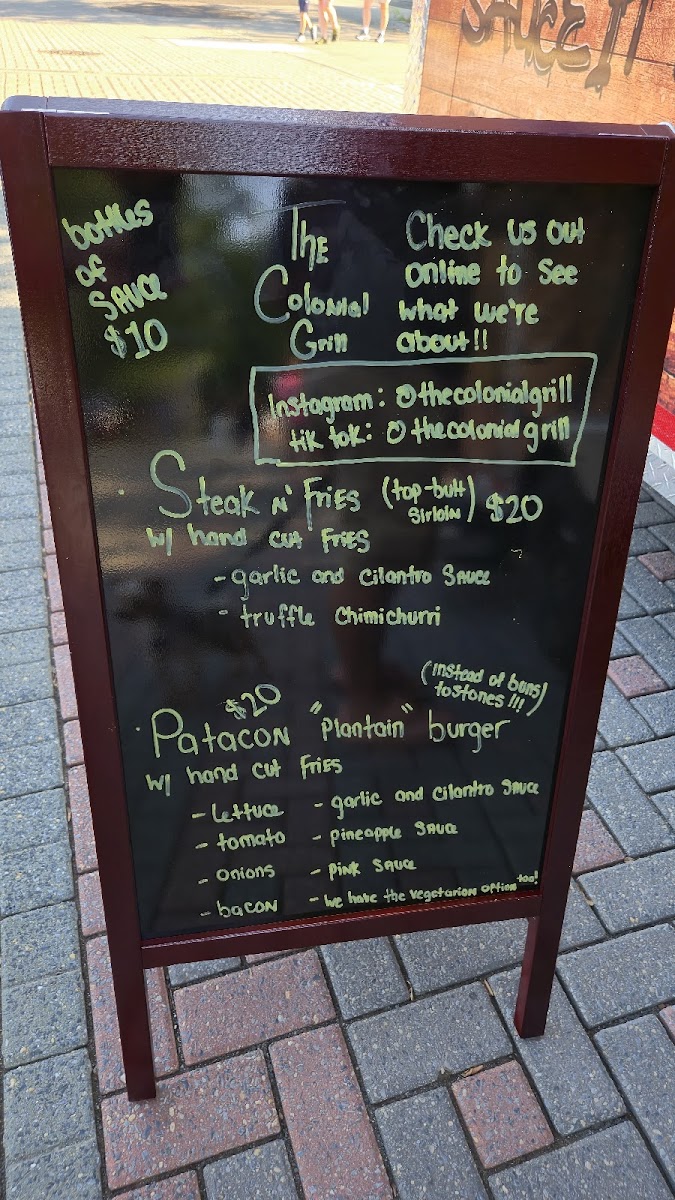 SAUCE IT
bottles
of
SAUCE
$10
The
Colonial
Grill
Check us out
online to see
what we're
about!!
Instagram: @thecolonialgrill
tik tok: @thecolonialgrill
Steak N' Fries (top-butt sirloin) $20
w/ hand cut fries
- garlic and cilantro sauce
- truffle chimichurri
$20
(instead of buns)
tostones!!!
Patacon "plantain" burger
w/ hand cut fries
- lettuce
- tomato
- onions
- bacon
- garlic and cilantro sauce
- pineapple sauce
- pink sauce
- we have the vegetarian option too!